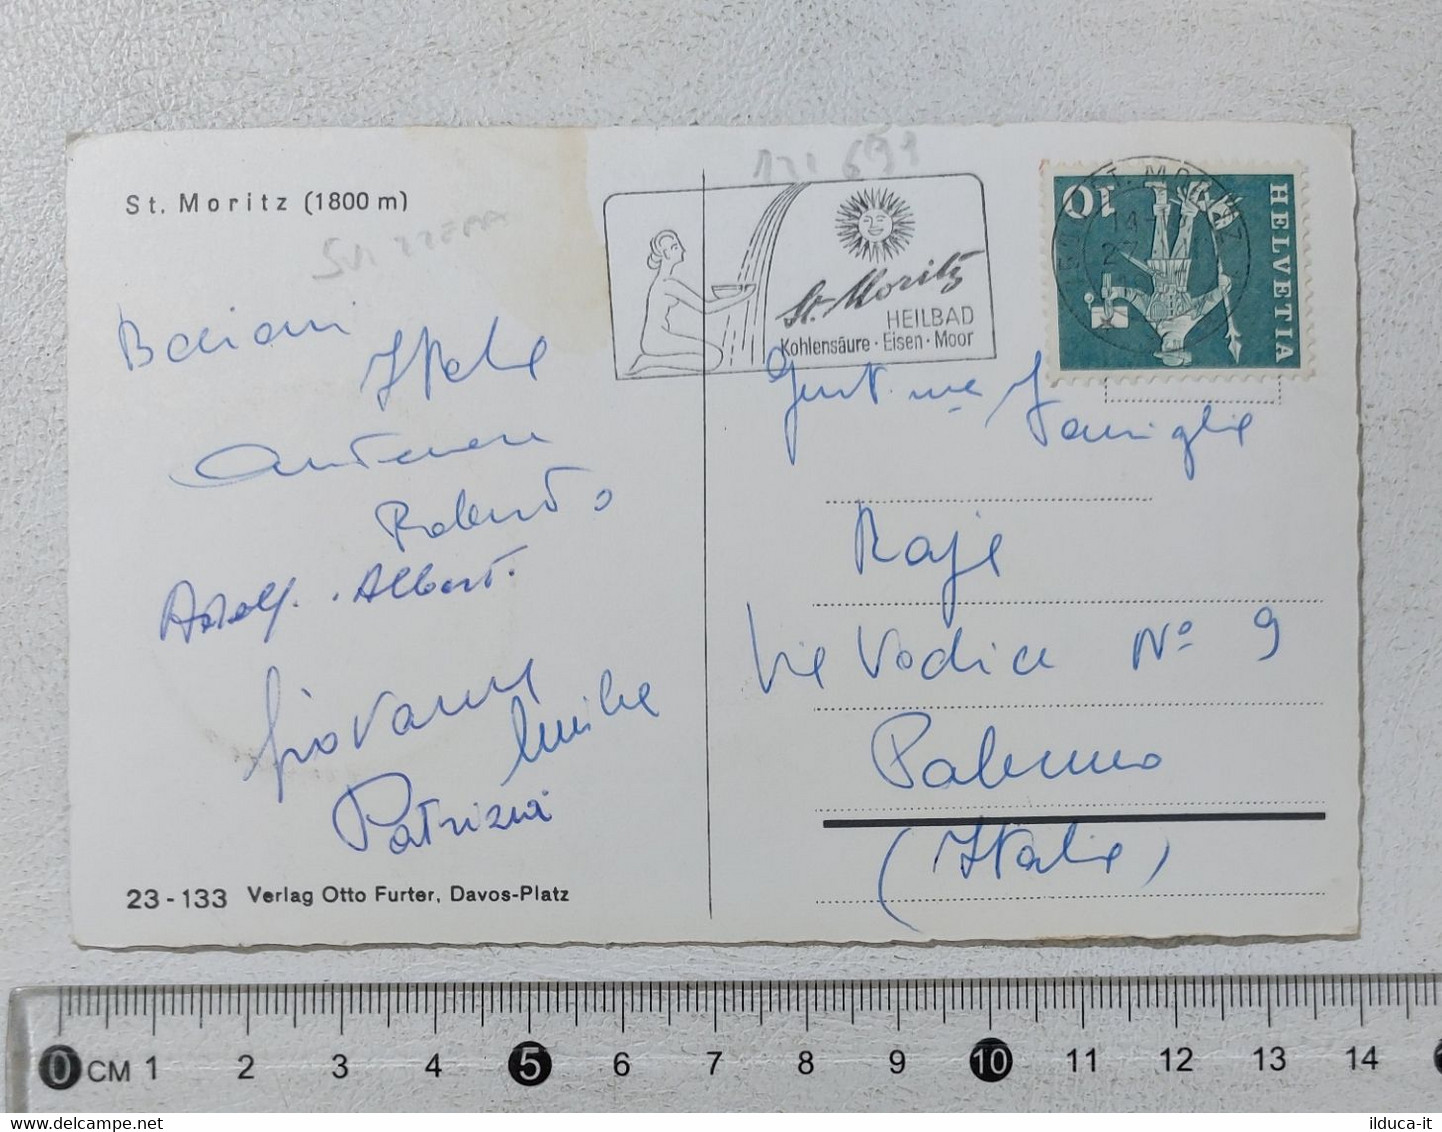 St. Moritz (1800 m)
SVIZZERA
131 691
St. Moritz
HEILBAD
Kohlensäure · Eisen · Moor
ST. MORITZ
10
HELVETIA
Bacioni
Itala
Roberto
Adolf. Albert.
Giovanni
Emilia
Patrizia
Gent.ma Famiglia
Raja
Via Vodice N° 9
Palermo
(Italia)
23-133 Verlag Otto Furter, Davos-Platz
0 CM 1 2 3 4 5 6 7 8 9 10 11 12 13 14
ilduca-it